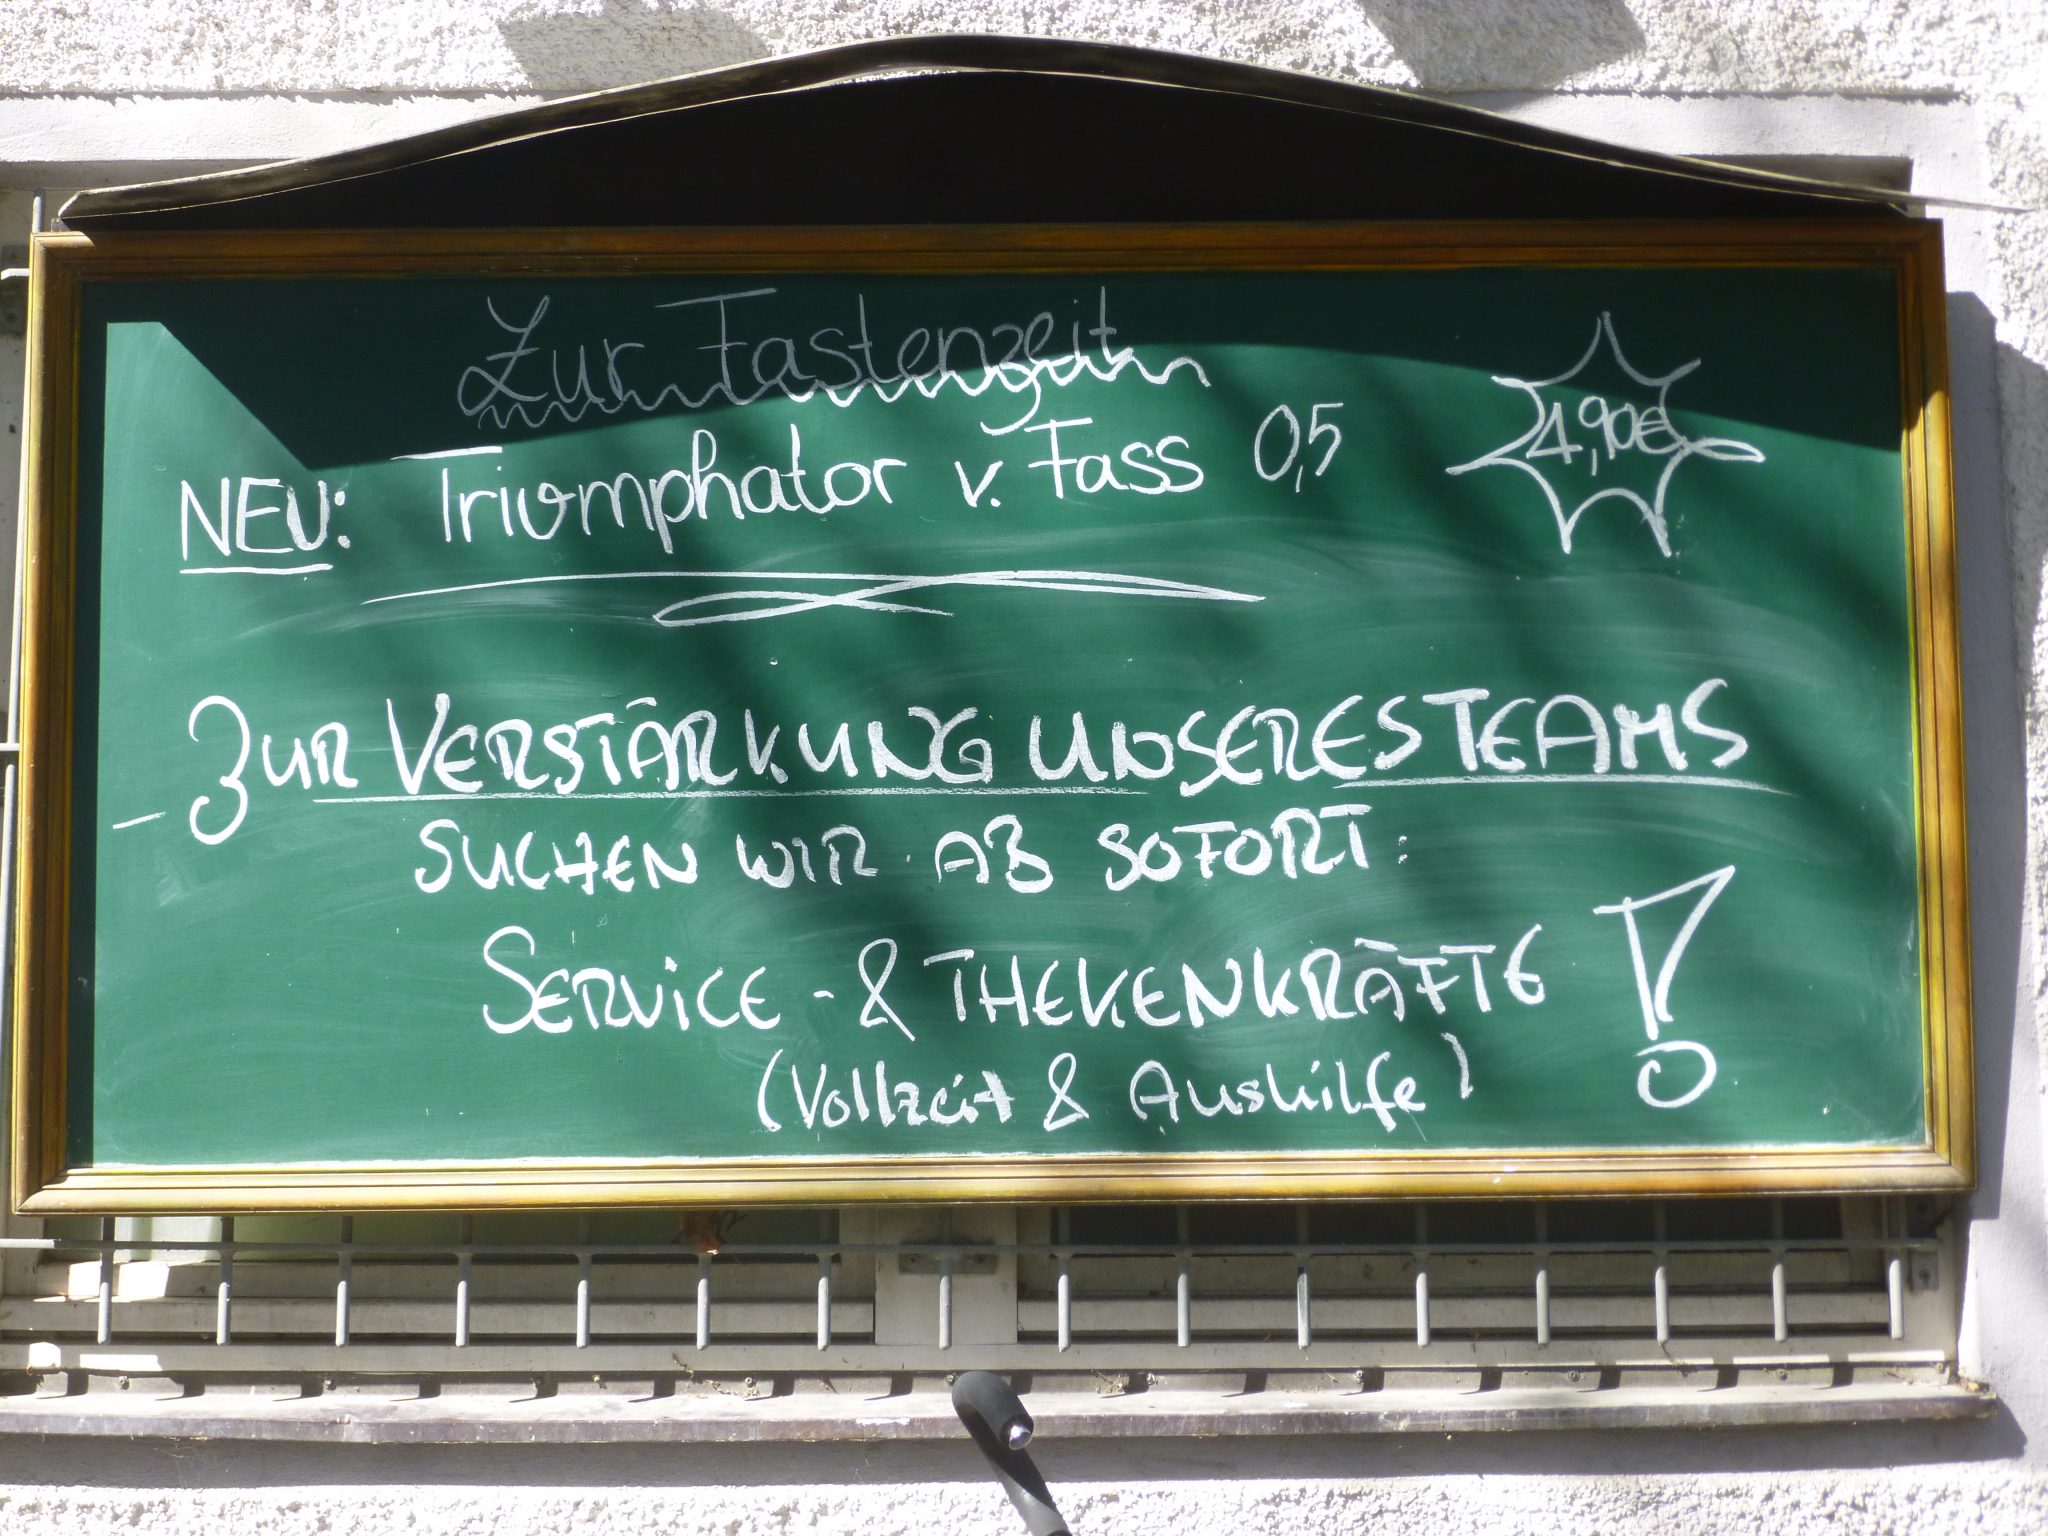 Zur Fastenzeit
NEU: Triumphator v. Fass 0,5 4,90€
ZUR VERSTÄRKUNG UNSERES TEAMS
SUCHEN WIR AB SOFORT:
SERVICE - & THEKENKRÄFTE !
(Vollzeit & Aushilfe)